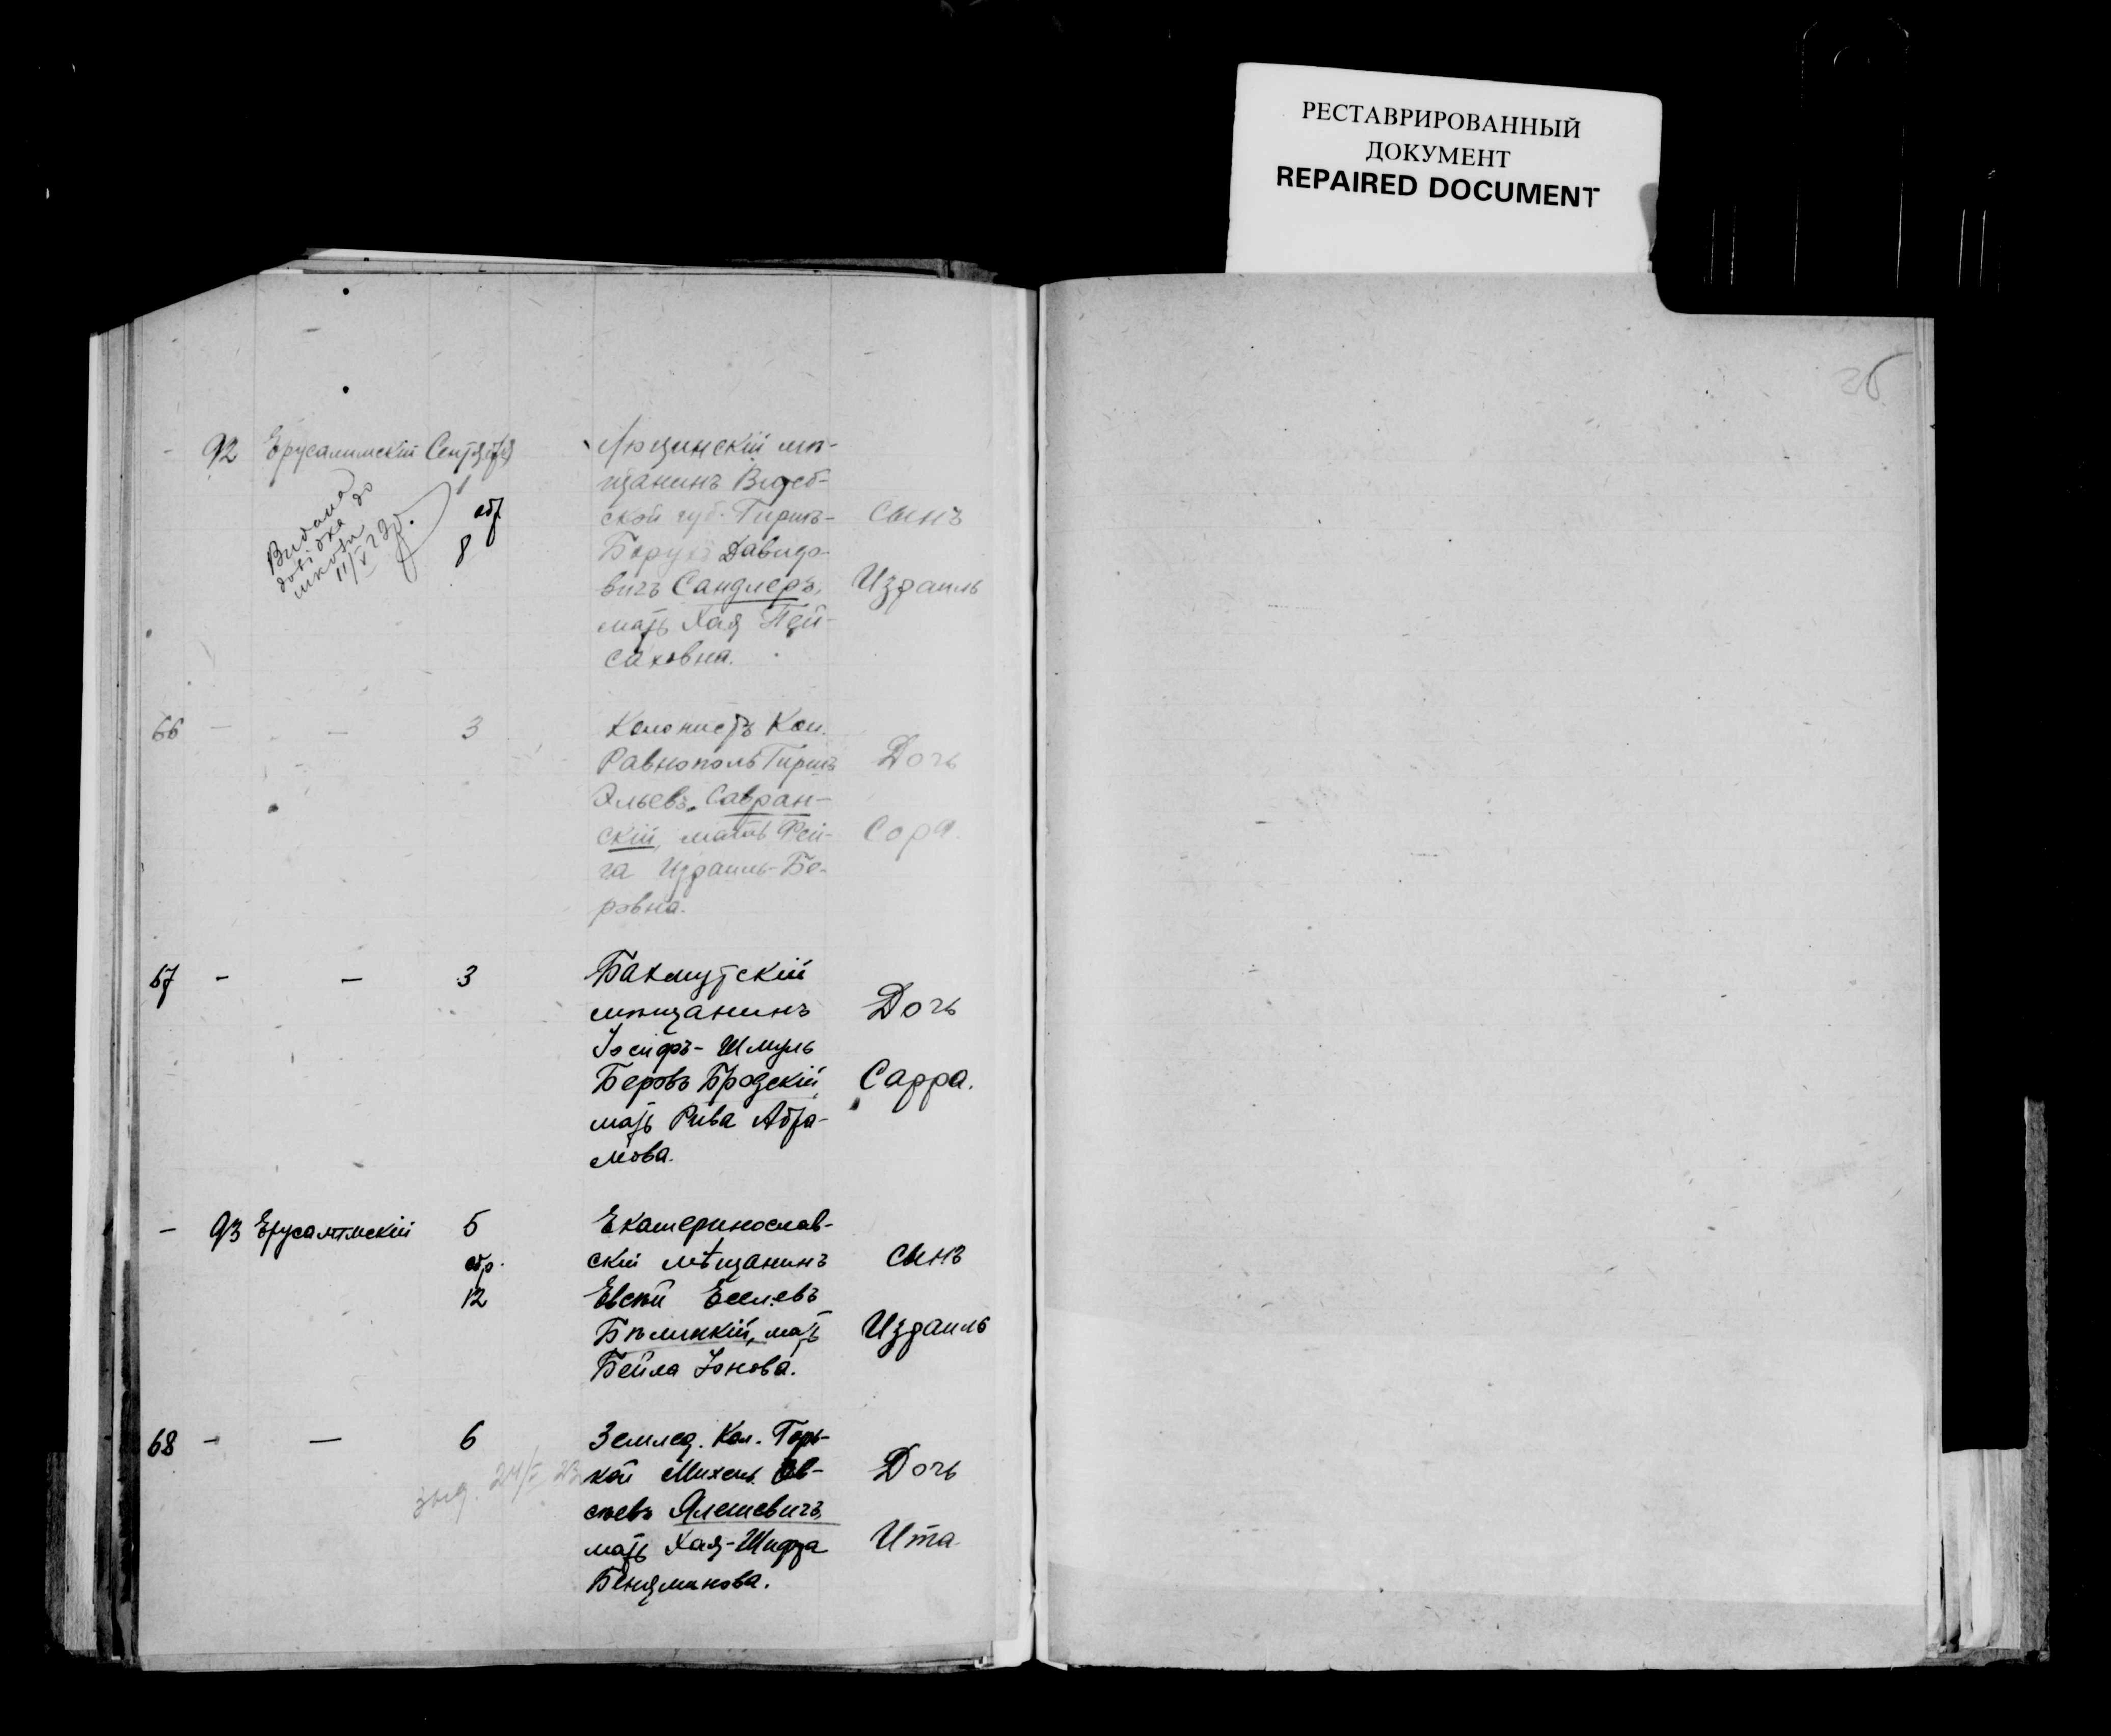 РЕСТАВРИРОВАННЫЙ
ДОКУМЕНТ
REPAIRED DOCUMENT
26
- 92 Ерусалимскій Сентября
1
обр
8
Видана
довідка до
школи
11/V 23 р.
Люцинскій мѣ-
щанинъ Витеб-
ской губ. Гиршъ-
Борухъ Давидо-
вичъ Сандлеръ,
мать Хая Пей-
саховна.
сынъ
Израиль
66 - - 3
Колонистъ Кол.
Равнополь Гиршъ
Эльевъ Савран-
скій, мать Фей-
га Израиль-Бе-
ровна.
Дочь
Сора.
67 - - 3
Бахмутскій
мѣщанинъ
Іосифъ-Шмуль
Беровъ Бродскій,
мать Рива Абра-
мова.
Дочь
Сарра.
- 93 Ерусалимскій 5
обр.
12
Екатеринослав-
скій мѣщанинъ
Евсѣй Еселевъ
Бѣлицкій, мать
Бейла Іонова.
сынъ
Израиль
68 - - 6
24/V 23
Землед. Кол. Горь-
кой Михель Ов-
сѣевъ Ялешевичъ
мать Хая-Шифра
Беняминова.
Дочь
Ита